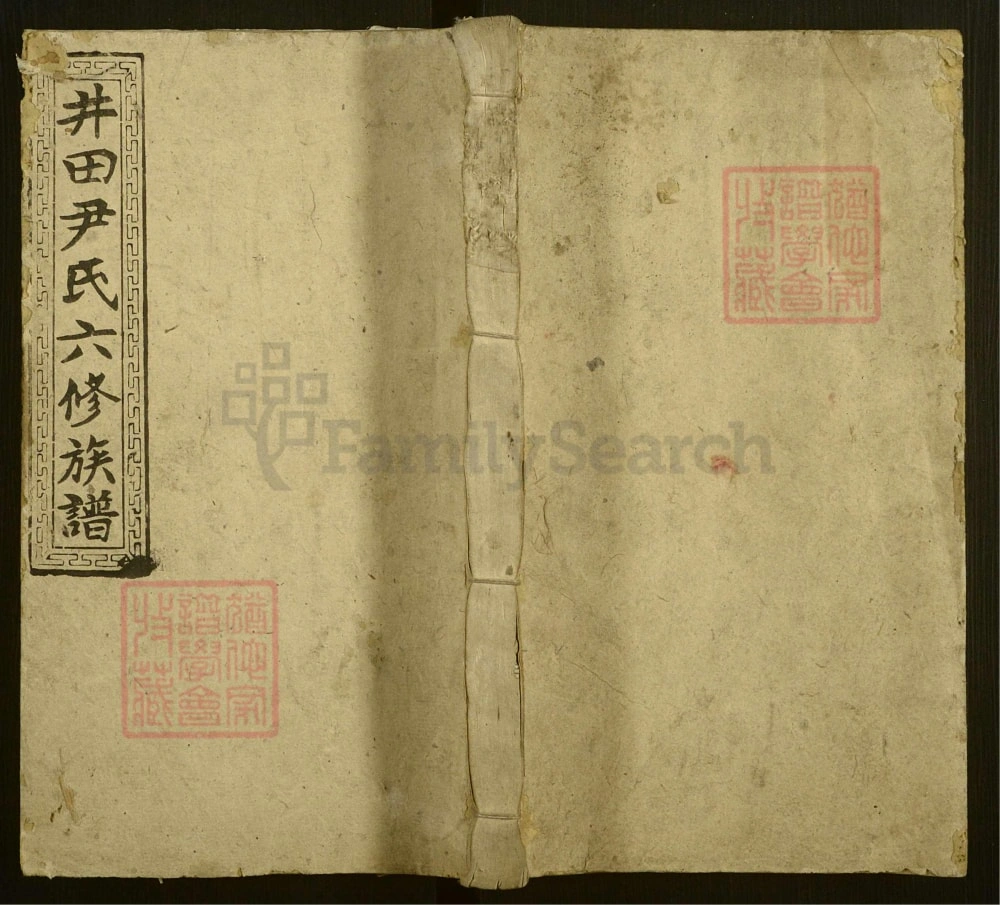 井田尹氏六修族譜
猶他家譜學會特藏
猶他家譜學會特藏
FamilySearch